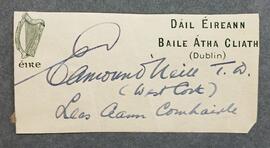 DÁIL ÉIREANN
BAILE ÁTHA CLIATH
(Dublin)
éire
Eamound O'Neill T.D.
(West Cork)
Leas Ceann Comhairle